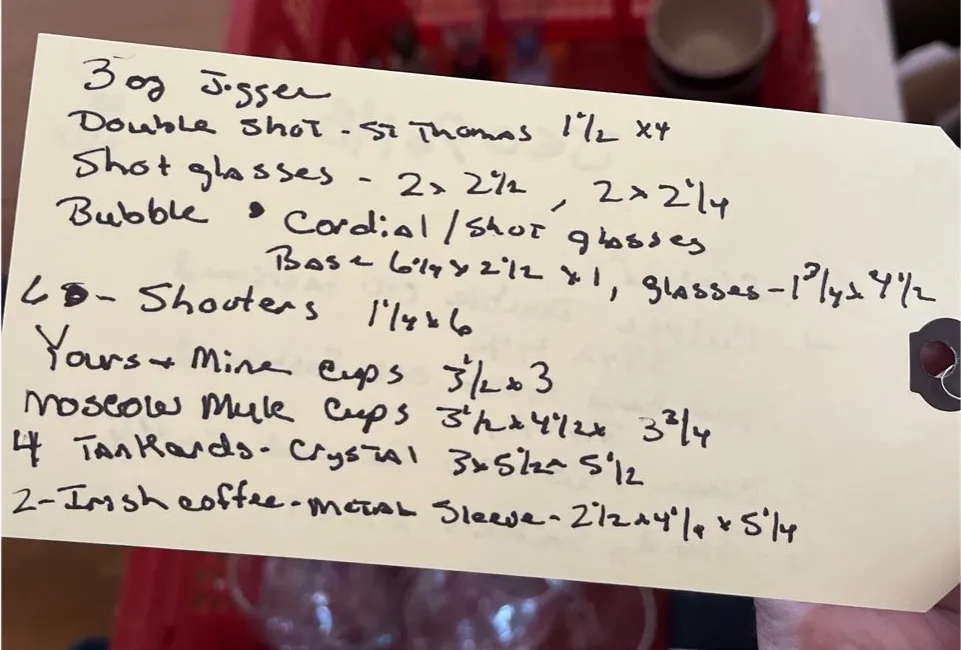 3 oz Jigger
Double Shot - St Thomas 1 1/2 x4
Shot glasses - 2 x 2 1/2, 2 x 2 1/4
Bubble • Cordial / Shot glasses
Base 6 1/4 x 2 1/2 x 1, glasses - 1 3/4 x 4 1/2
6 - Shooters 1 1/4 x 6
Yours + Mine Cups 3 1/2 x 3
Moscow Mule Cups 3 1/2 x 4 1/2 x 3 3/4
4 Tankards - Crystal 3 x 5 1/2 x 5 1/2
2 - Irish coffee - metal Sleeve - 2 1/2 x 4 1/4 x 5 1/4